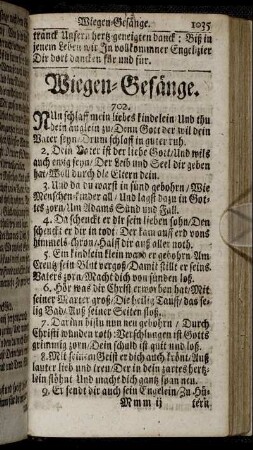 Wiegen-Gesänge. 1035
tranck Unsern hertz geneigten danck: Biß in
jenem Leben wir In vollkommner Engelzier
Dir dort dancken für und für.
Wiegen-Gesänge.
702.
NUn schlaff mein liebes kindelein Und thu
dein äuglein zu/ Denn Gott der wil dein
Vater seyn/ Drum schlaff in guter ruh.
2. Dein Vater ist der liebe Gott/ Und wils
auch ewig seyn/ Der Leib und Seel dir geben
hat/ Woll durch die Eltern dein.
3. Und da du warst in sünd gebohrn/ Wie
Menschen-kinder all/ Und lagst dazu in Got-
tes zorn/ Um Adams Sünd und Fall.
4. Da schenckt er dir sein lieben sohn/ Den
schenckt er dir in tod: Der kam auff erd vons
himmels-thron/ Halff dir auß aller noth.
5. Ein kindlein klein ward er gebohrn/ Am
Creutz sein Blut vergoß/ Damit stillt er seins
Vaters zorn/ Macht dich von sünden loß.
6. Hör was dir Christ erworben hat/ Mit
seiner Marter groß/ Die heilig Tauff/ das se-
lig Bad/ Auß seiner Seiten floß.
7. Darinn bistu nun neu gebohrn/ Durch
Christi wunden roth/ Verschlungen ist Gotts
grimmig zorn/ Dein schuld ist quit und loß.
8. Mit seinem Geist er dich auch krönt/ Auß
lauter lieb und treu/ Der in dein zartes hertz-
lein stöhnt Und macht dich gantz span neu.
9. Er sendt dir auch sein Engelein/ Zu Hü-
Mmm ij tern